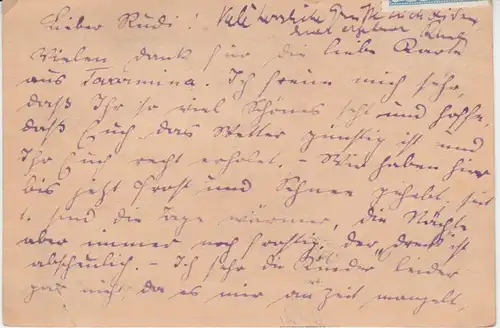 Lieber Rudi! Viele herzliche Grüße
Vielen Dank für die liebe Karte
aus Taormina. Ich freue mich sehr,
daß Ihr so viel Schönes seht und hoffe,
daß Euch das Wetter günstig ist und
Ihr Euch recht erholet. – Wir haben hier
bis jetzt Frost und Schnee gehabt, seit
1. sind die Tage wärmer, die Nächte
aber immer noch frostig, der "Dreck" ist
abscheulich. – Ich sehe die Kinder leider
gar nicht, da es mir an Zeit mangelt,